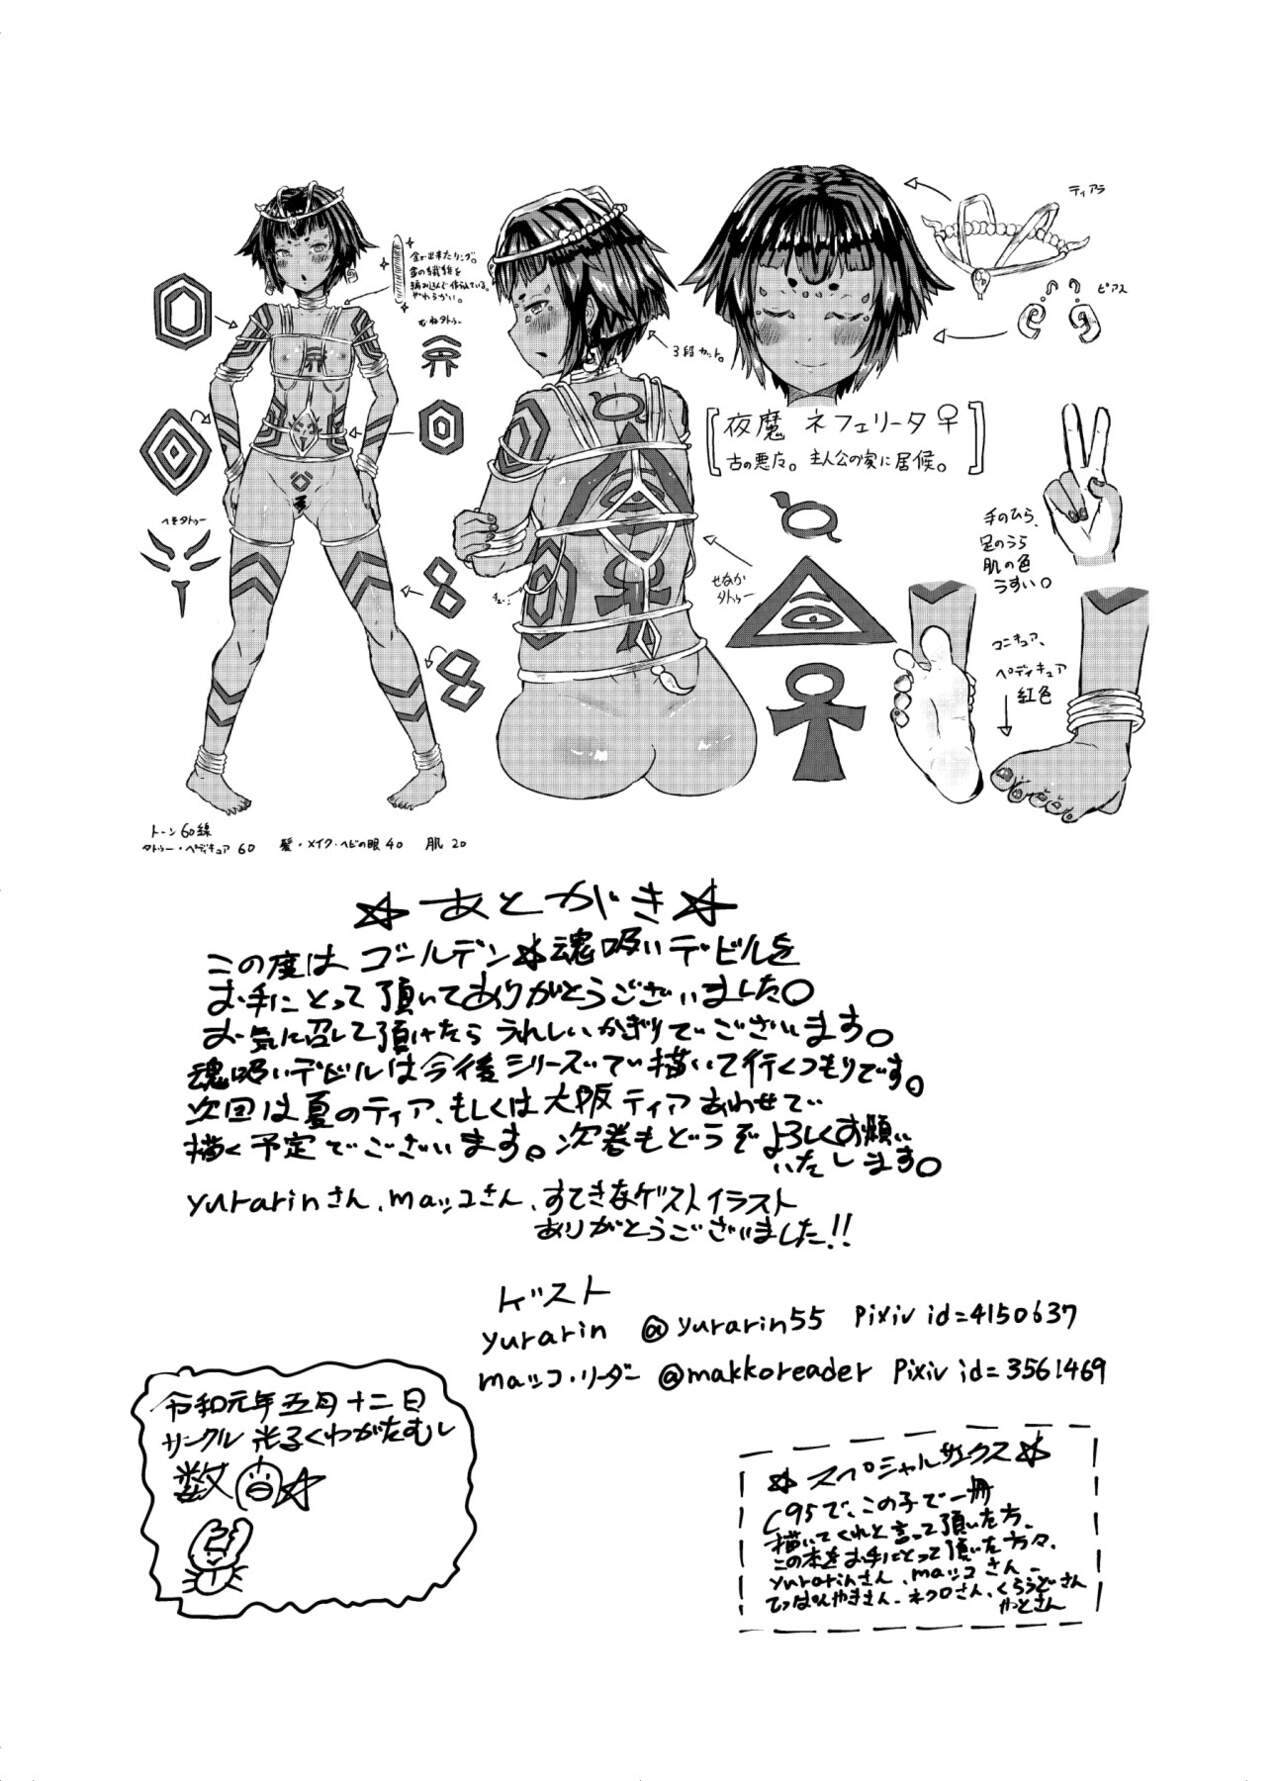 ティアラ
ピアス
金で出来たリング。
金の繊維を
編み込んで作られている。
やわらかい。
むねタトゥー
3段カット。
[夜魔 ネフェリータ♀
古の悪魔。主人公の家に居候。]
へそタトゥー
せなか
タトゥー
手のひら、
足のうら
肌の色
うすい。
マニキュア、
ペディキュア
紅色
トーン60線
タトゥー・ペディキュア 60 髪・メイク・ヘビの眼 40 肌 20
☆あとがき☆
この度は ゴールデン☆魂吸いデビルを
お手にとって頂いてありがとうございました。
お気に召して頂けたら うれしいかぎりでございます。
魂吸いデビルは今後シリーズで描いて行くつもりです。
次回は夏のティア、もしくは大阪ティアあわせで
描く予定でございます。次巻もどうぞよろしくお願い
いたします。
yurarinさん、maッコさん、すてきなゲストイラスト
ありがとうございました!!
ゲスト
yurarin @yurarin55 Pixiv id=4150637
maッコ・リーダー @makkoreader Pixiv id=3561469
令和元年五月十二日
サークル 光子くわがたむし
数
☆スペシャルサンクス☆
C95で、この子で一冊
描いてくれと言って頂いた方、
この本をお手にとって頂いた方々、
yurarinさん、maッコさん、
てっぱんやきさん、ネクロさん、くらうどさん
やっとさん